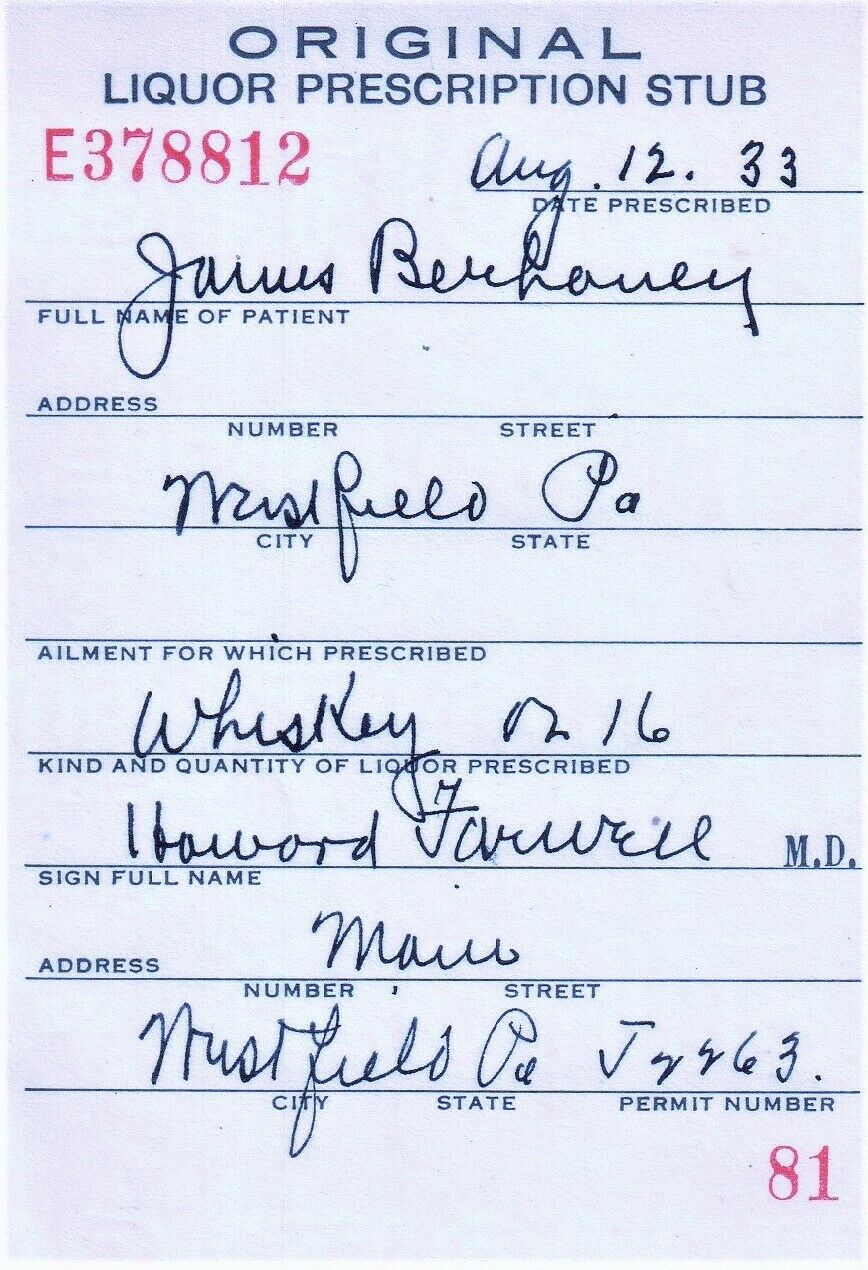 ORIGINAL
LIQUOR PRESCRIPTION STUB
E378812
Aug. 12. 33
DATE PRESCRIBED
James
FULL NAME OF PATIENT
ADDRESS
NUMBER STREET
Westfield Pa
CITY STATE
AILMENT FOR WHICH PRESCRIBED
Whiskey oz 16
KIND AND QUANTITY OF LIQUOR PRESCRIBED
Howard Farwell M.D.
SIGN FULL NAME
ADDRESS Main
NUMBER STREET
Westfield Pa
CITY STATE PERMIT NUMBER
81